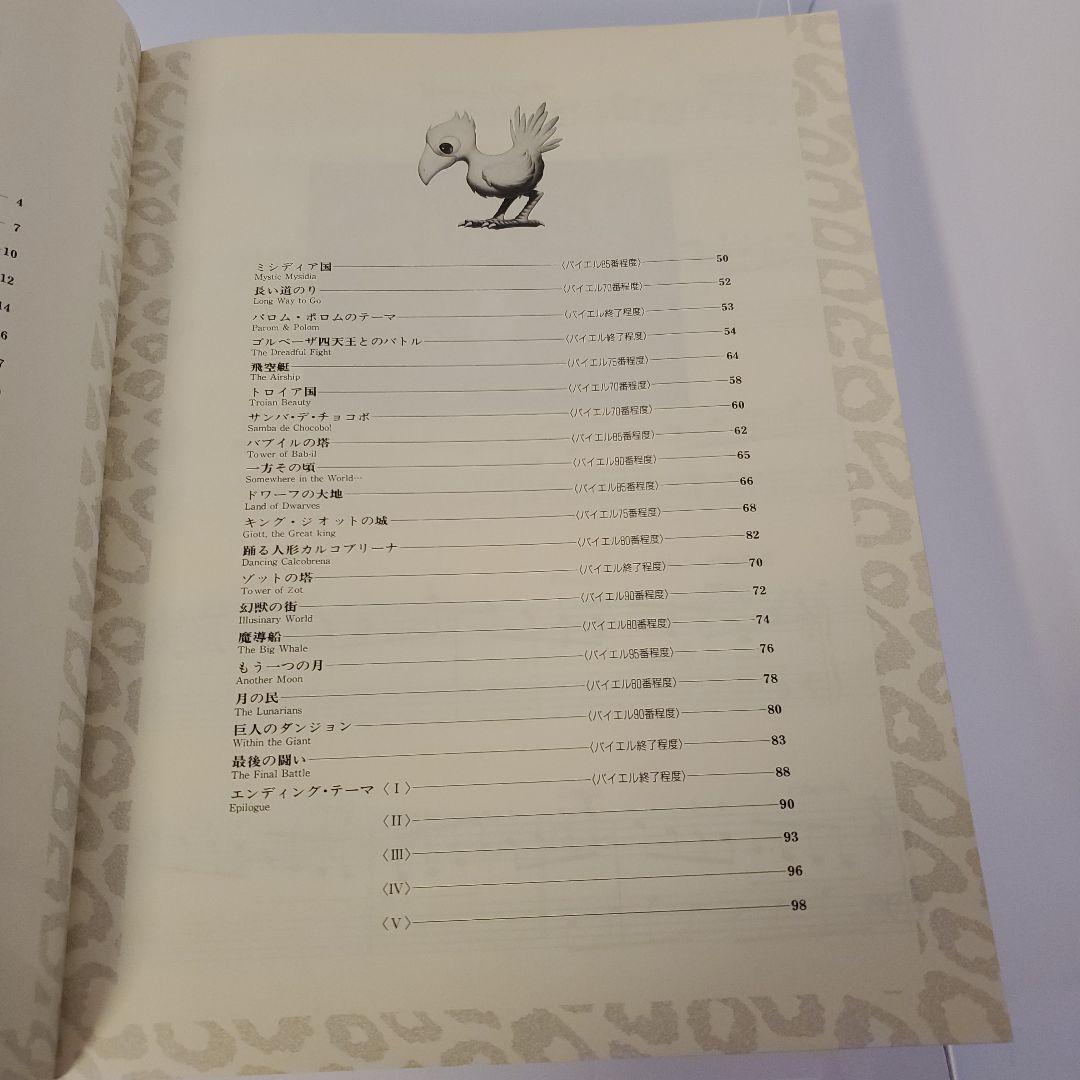 4
7
10
12
14
6
7
ミシディア国 〈バイエル85番程度〉 50
Mystic Mysidia
長い道のり 〈バイエル70番程度〉 52
Long Way to Go
パロム・ポロムのテーマ 〈バイエル終了程度〉 53
Parom & Polom
ゴルベーザ四天王とのバトル 〈バイエル終了程度〉 54
The Dreadful Fight
飛空艇 〈バイエル75番程度〉 64
The Airship
トロイア国 〈バイエル70番程度〉 58
Troian Beauty
サンバ・デ・チョコボ 〈バイエル70番程度〉 60
Samba de Chocobo!
バブイルの塔 〈バイエル85番程度〉 62
Tower of Bab-il
一方その頃 〈バイエル90番程度〉 65
Somewhere in the World…
ドワーフの大地 〈バイエル85番程度〉 66
Land of Dwarves
キング・ジオットの城 〈バイエル75番程度〉 68
Giott, the Great king
踊る人形カルコブリーナ 〈バイエル80番程度〉 82
Dancing Calcobrena
ゾットの塔 〈バイエル終了程度〉 70
Tower of Zot
幻獣の街 〈バイエル90番程度〉 72
Illusinary World
魔導船 〈バイエル80番程度〉 74
The Big Whale
もう一つの月 〈バイエル95番程度〉 76
Another Moon
月の民 〈バイエル80番程度〉 78
The Lunarians
巨人のダンジョン 〈バイエル90番程度〉 80
Within the Giant
最後の闘い 〈バイエル終了程度〉 83
The Final Battle
エンディング・テーマ〈Ⅰ〉 〈バイエル終了程度〉 88
Epilogue
〈Ⅱ〉 90
〈Ⅲ〉 93
〈Ⅳ〉 96
〈Ⅴ〉 98